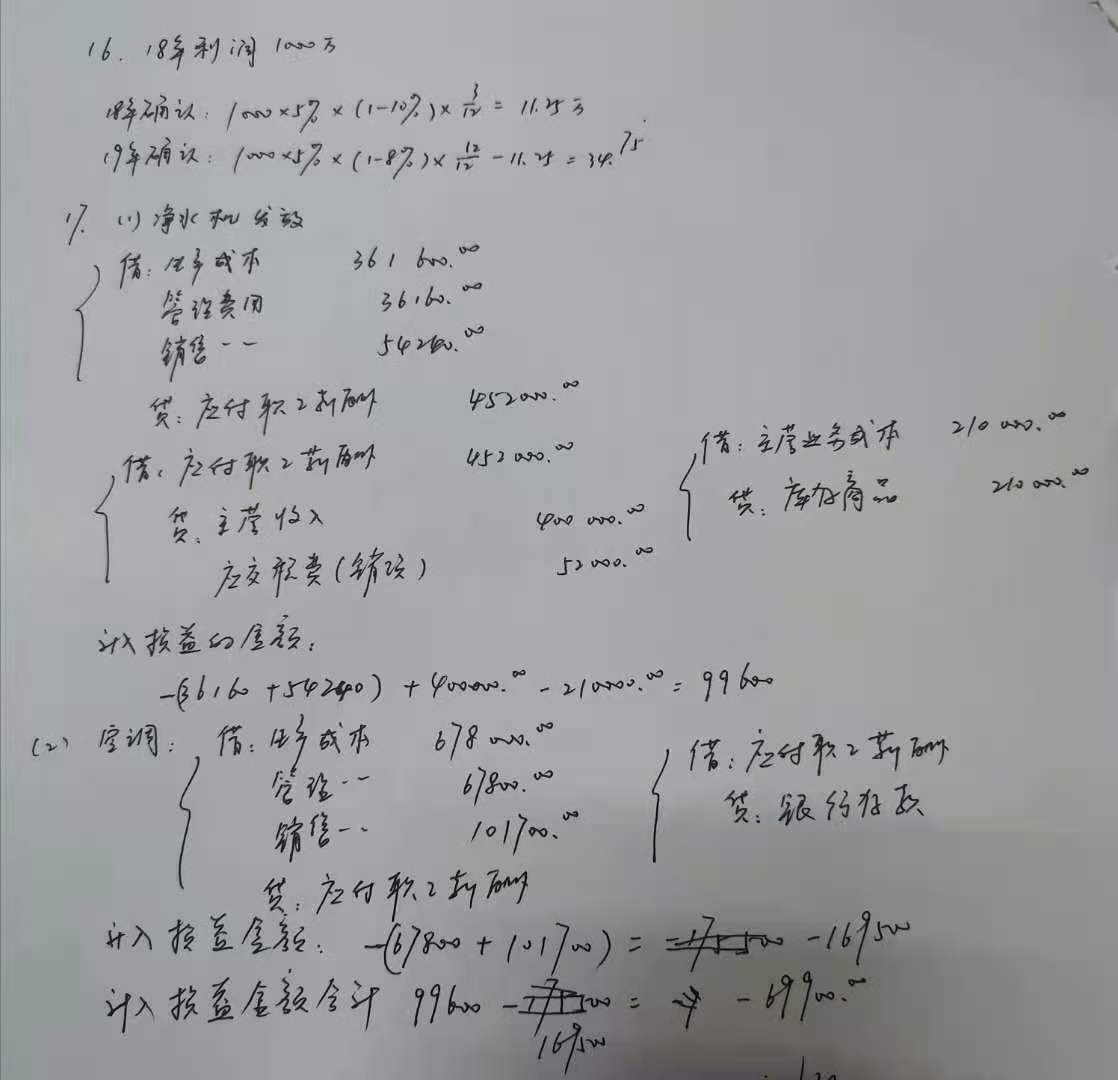 16. 18年利润 1000万
18年确认: 1000×5%×(1-10%)×3/12 = 11.25万
19年确认: 1000×5%×(1-8%)×12/12 - 11.25 = 34.75
17. (1) 净水机发放
借: 生产成本 361 600.00
管理费用 36160.00
销售-- 54240.00
贷: 应付职工薪酬 452000.00
借: 应付职工薪酬 452000.00
贷: 主营收入 400 000.00
应交税费(销项) 52000.00
借: 主营业务成本 210 000.00
贷: 库存商品 210 000.00
计入损益的金额:
-(36160+54240)+400000.00-210000.00=99600
(2) 空调: 借: 生产成本 678 000.00
管理-- 67800.00
销售-- 101700.00
贷: 应付职工薪酬
借: 应付职工薪酬
贷: 银行存款
计入损益金额: -(67800+101700) = -169500
计入损益金额合计 99600 - 169500 = -69900.00